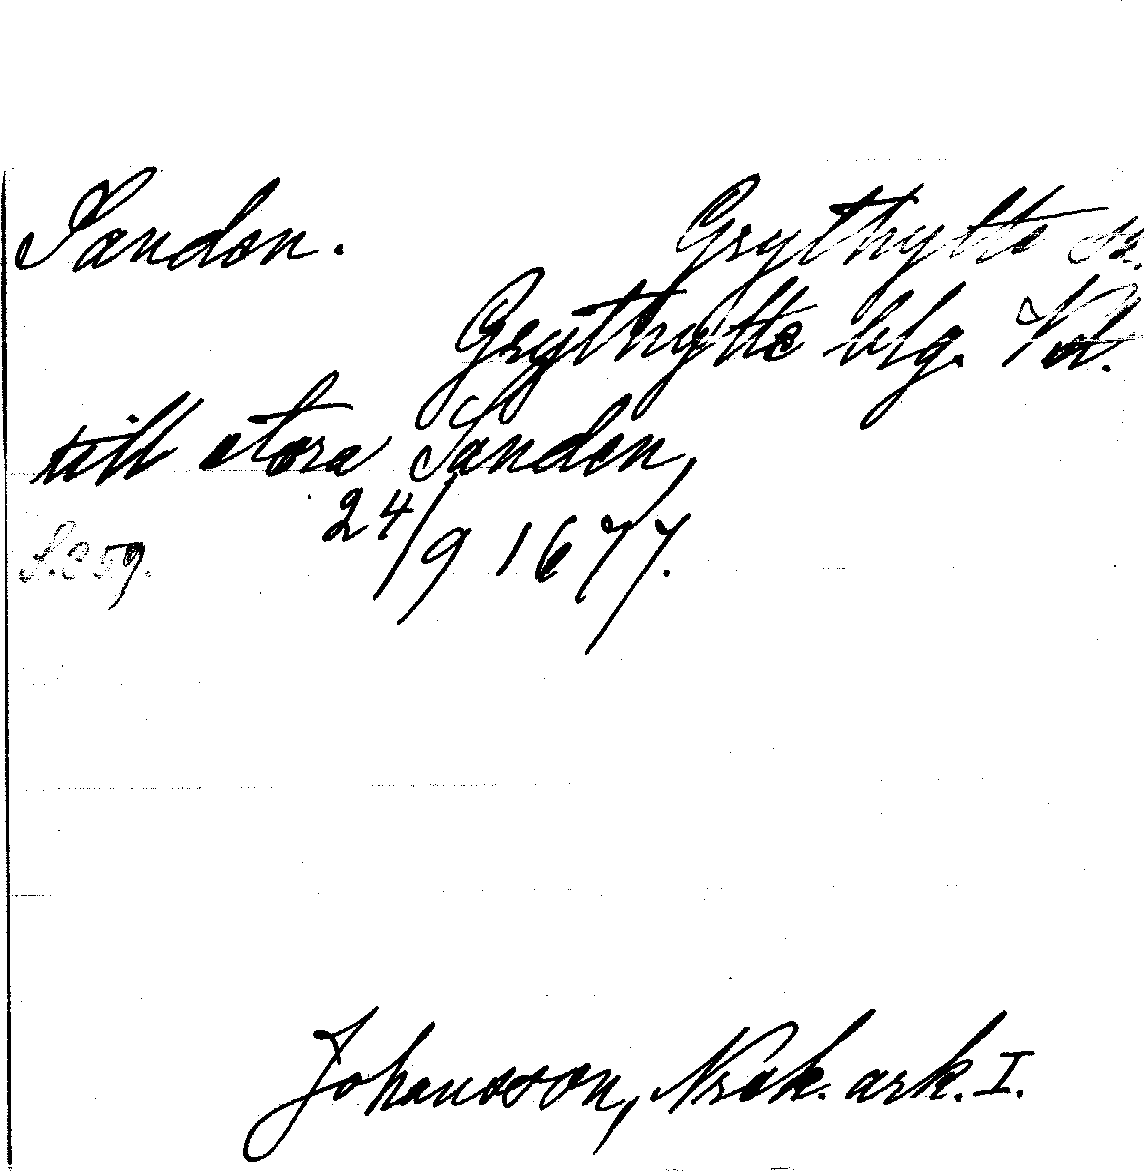 Sanden. Grythytte sn.
Grythytte blg. Vd.
till stora Sanden,
24/9 1677.
S. 359.
Johansson, Nrsk. ark. I.